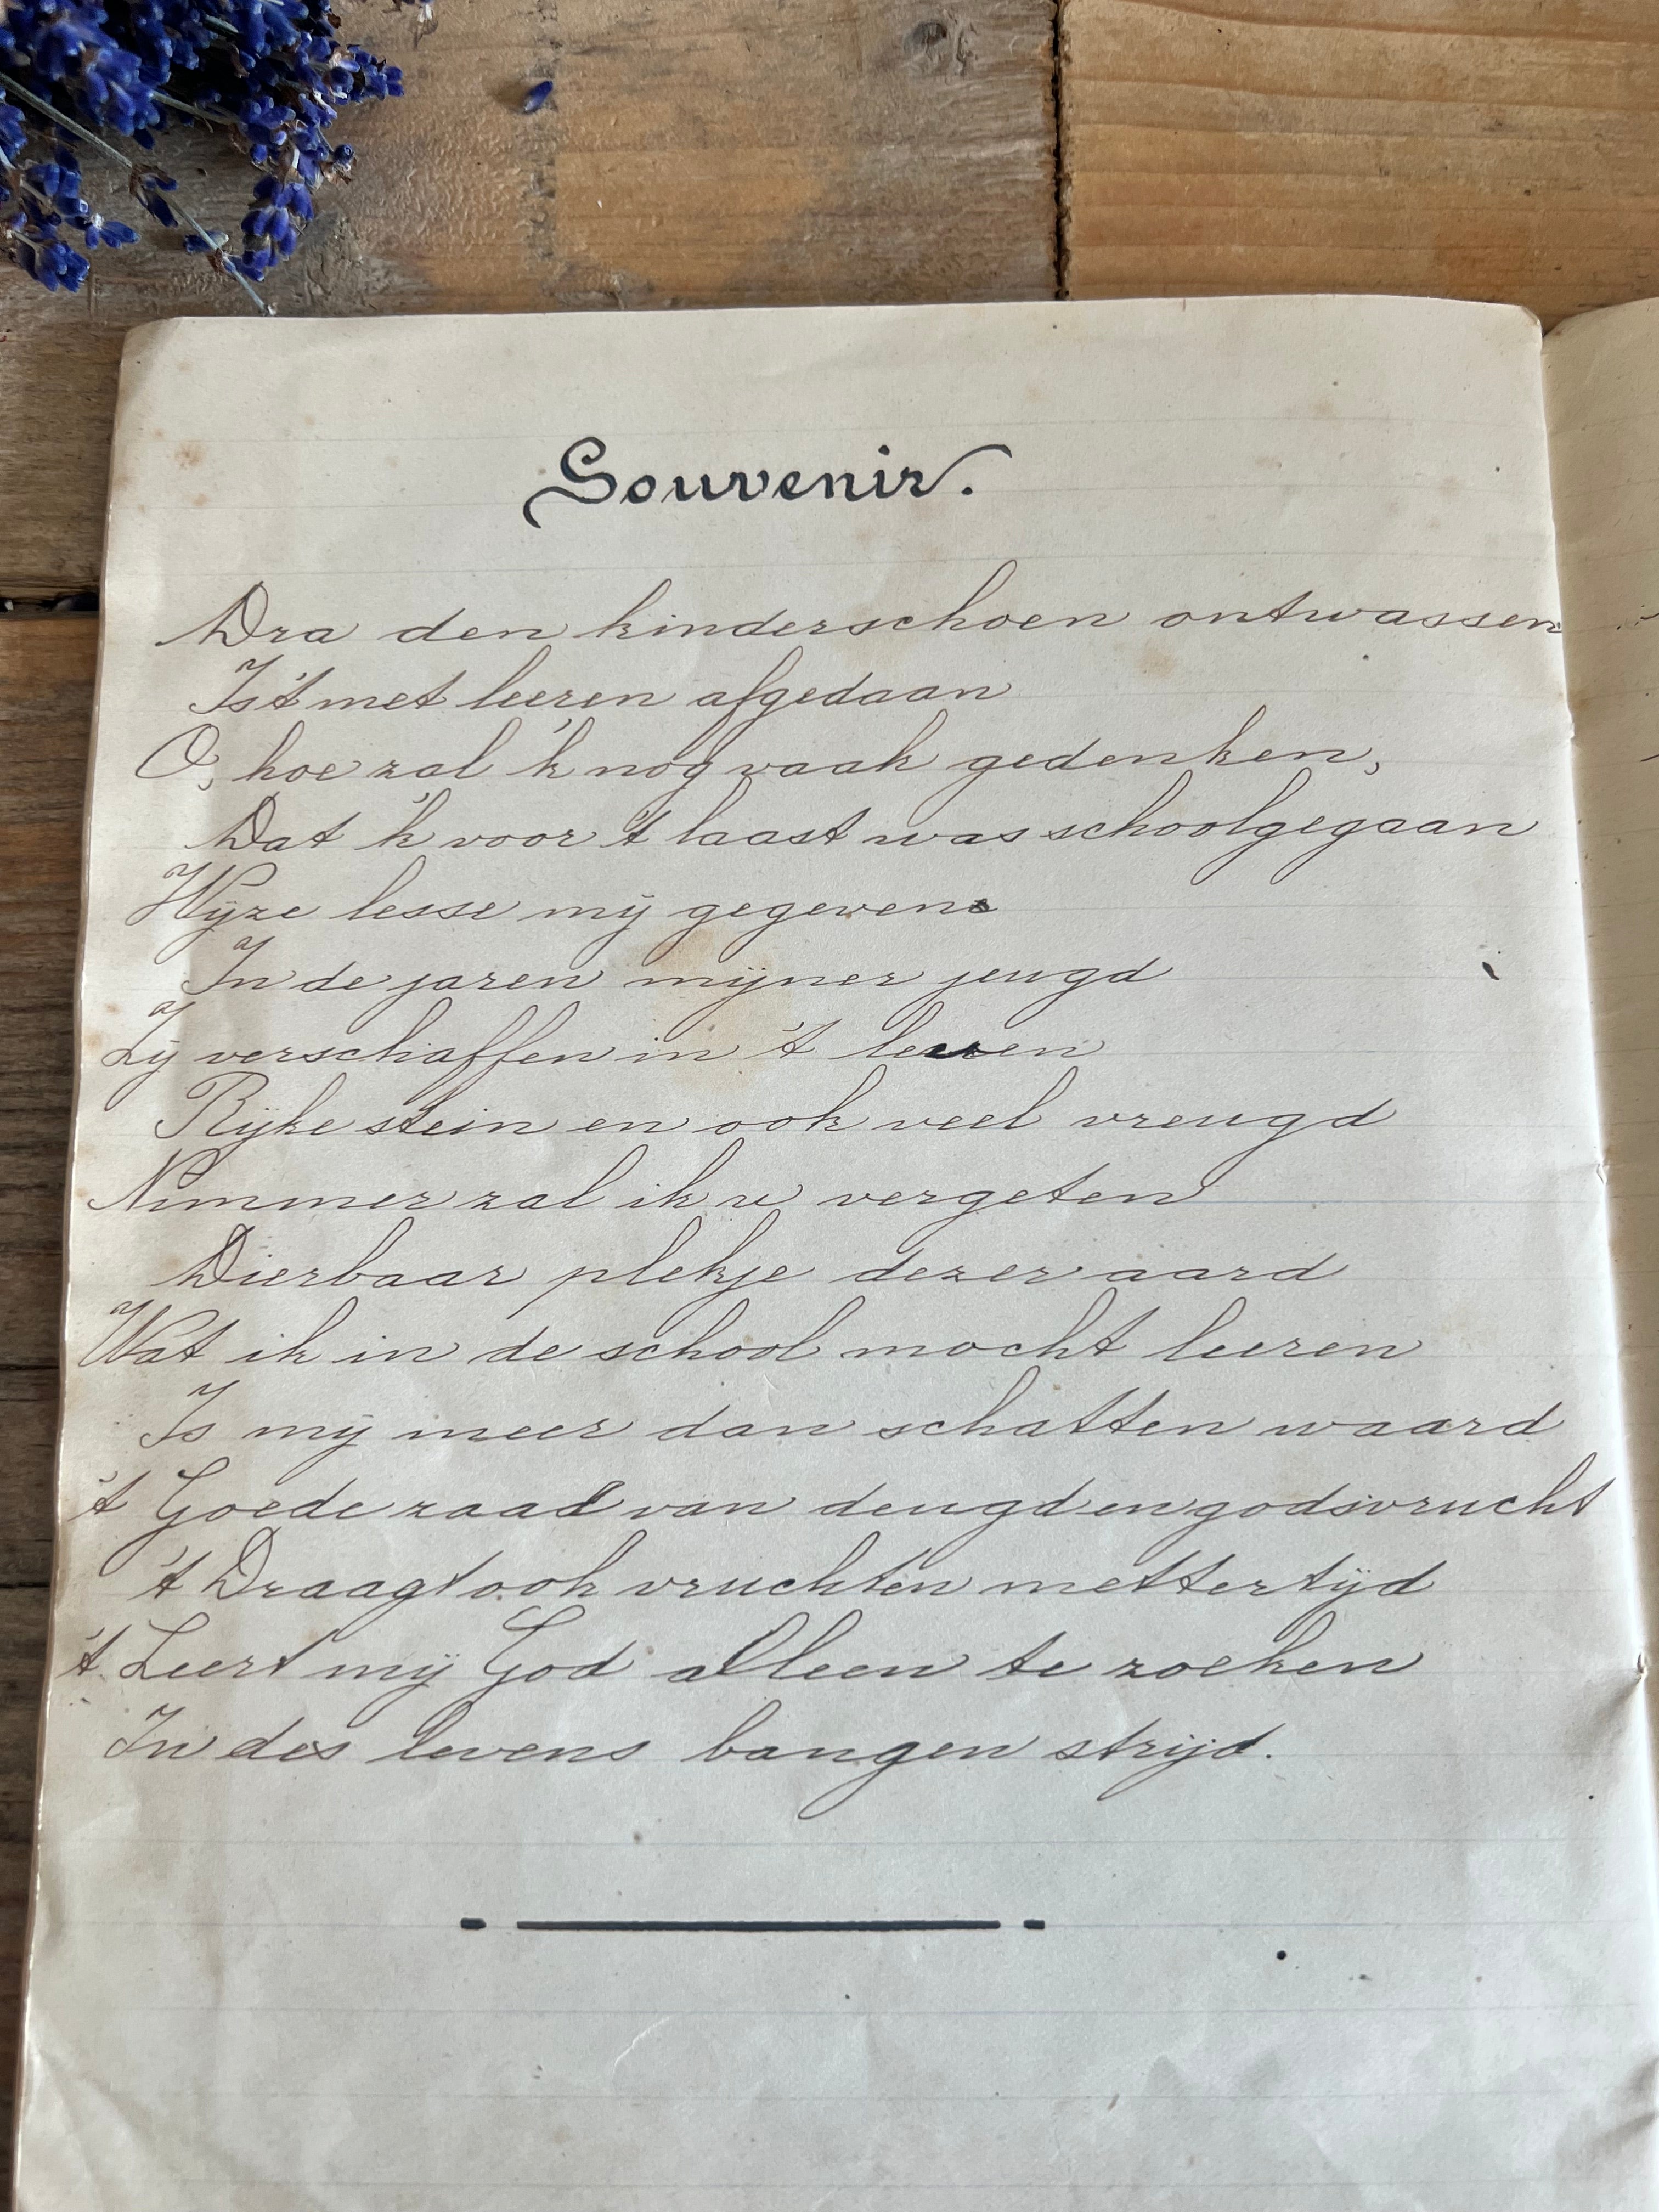 Souvenir.
Dra den kinderschoen ontwassen
Is't met leeren afgedaan
O, hoe zal 'k nog vaak gedenken,
Dat 'k voor 't laast was schoolgegaan
Wijze lesse mij gegeven
In de jaren mijner jeugd
Zij verschaffen in 't leven
Rijke stein en ook veel vreugd
Nimmer zal ik u vergeten
Dierbaar plekje dezer aard
Wat ik in de school mocht leeren
Is mij meer dan schatten waard
't Goede zaad van deugd en godsvrucht
't Draagt ook vruchten mettertijd
't Leert mij God alleen te zoeken
In des levens bangen strijd.